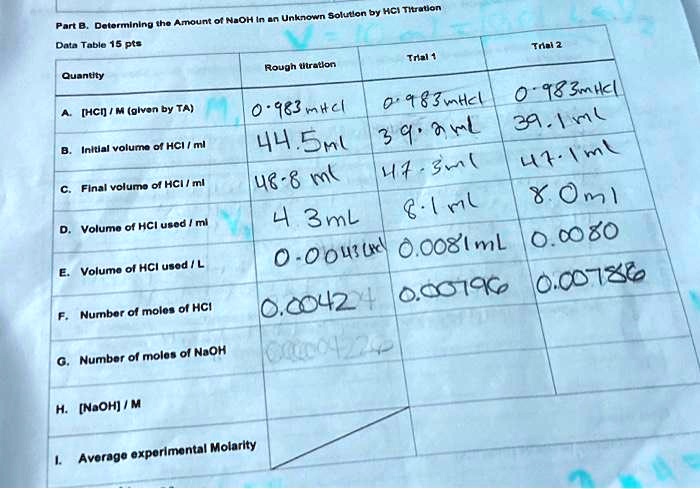 Part B. Determining the Amount of NaOH in an Unknown Solution by HCl Titration
Data Table 15 pts
Quantity Rough titration Trial 1 Trial 2
A. [HCl] / M (given by TA) 0.983 mHCl 0.983mHCl 0.983mHCl
B. Initial volume of HCl / ml 44.5ml 39.2ml 39.1ml
C. Final volume of HCl / ml 48.8 ml 47.3ml 47.1ml
D. Volume of HCl used / ml 4.3mL 8.1ml 8.0ml
E. Volume of HCl used / L 0.0043 0.0081mL 0.0080
F. Number of moles of HCl 0.0042 0.00796 0.00786
G. Number of moles of NaOH
H. [NaOH] / M
I. Average experimental Molarity